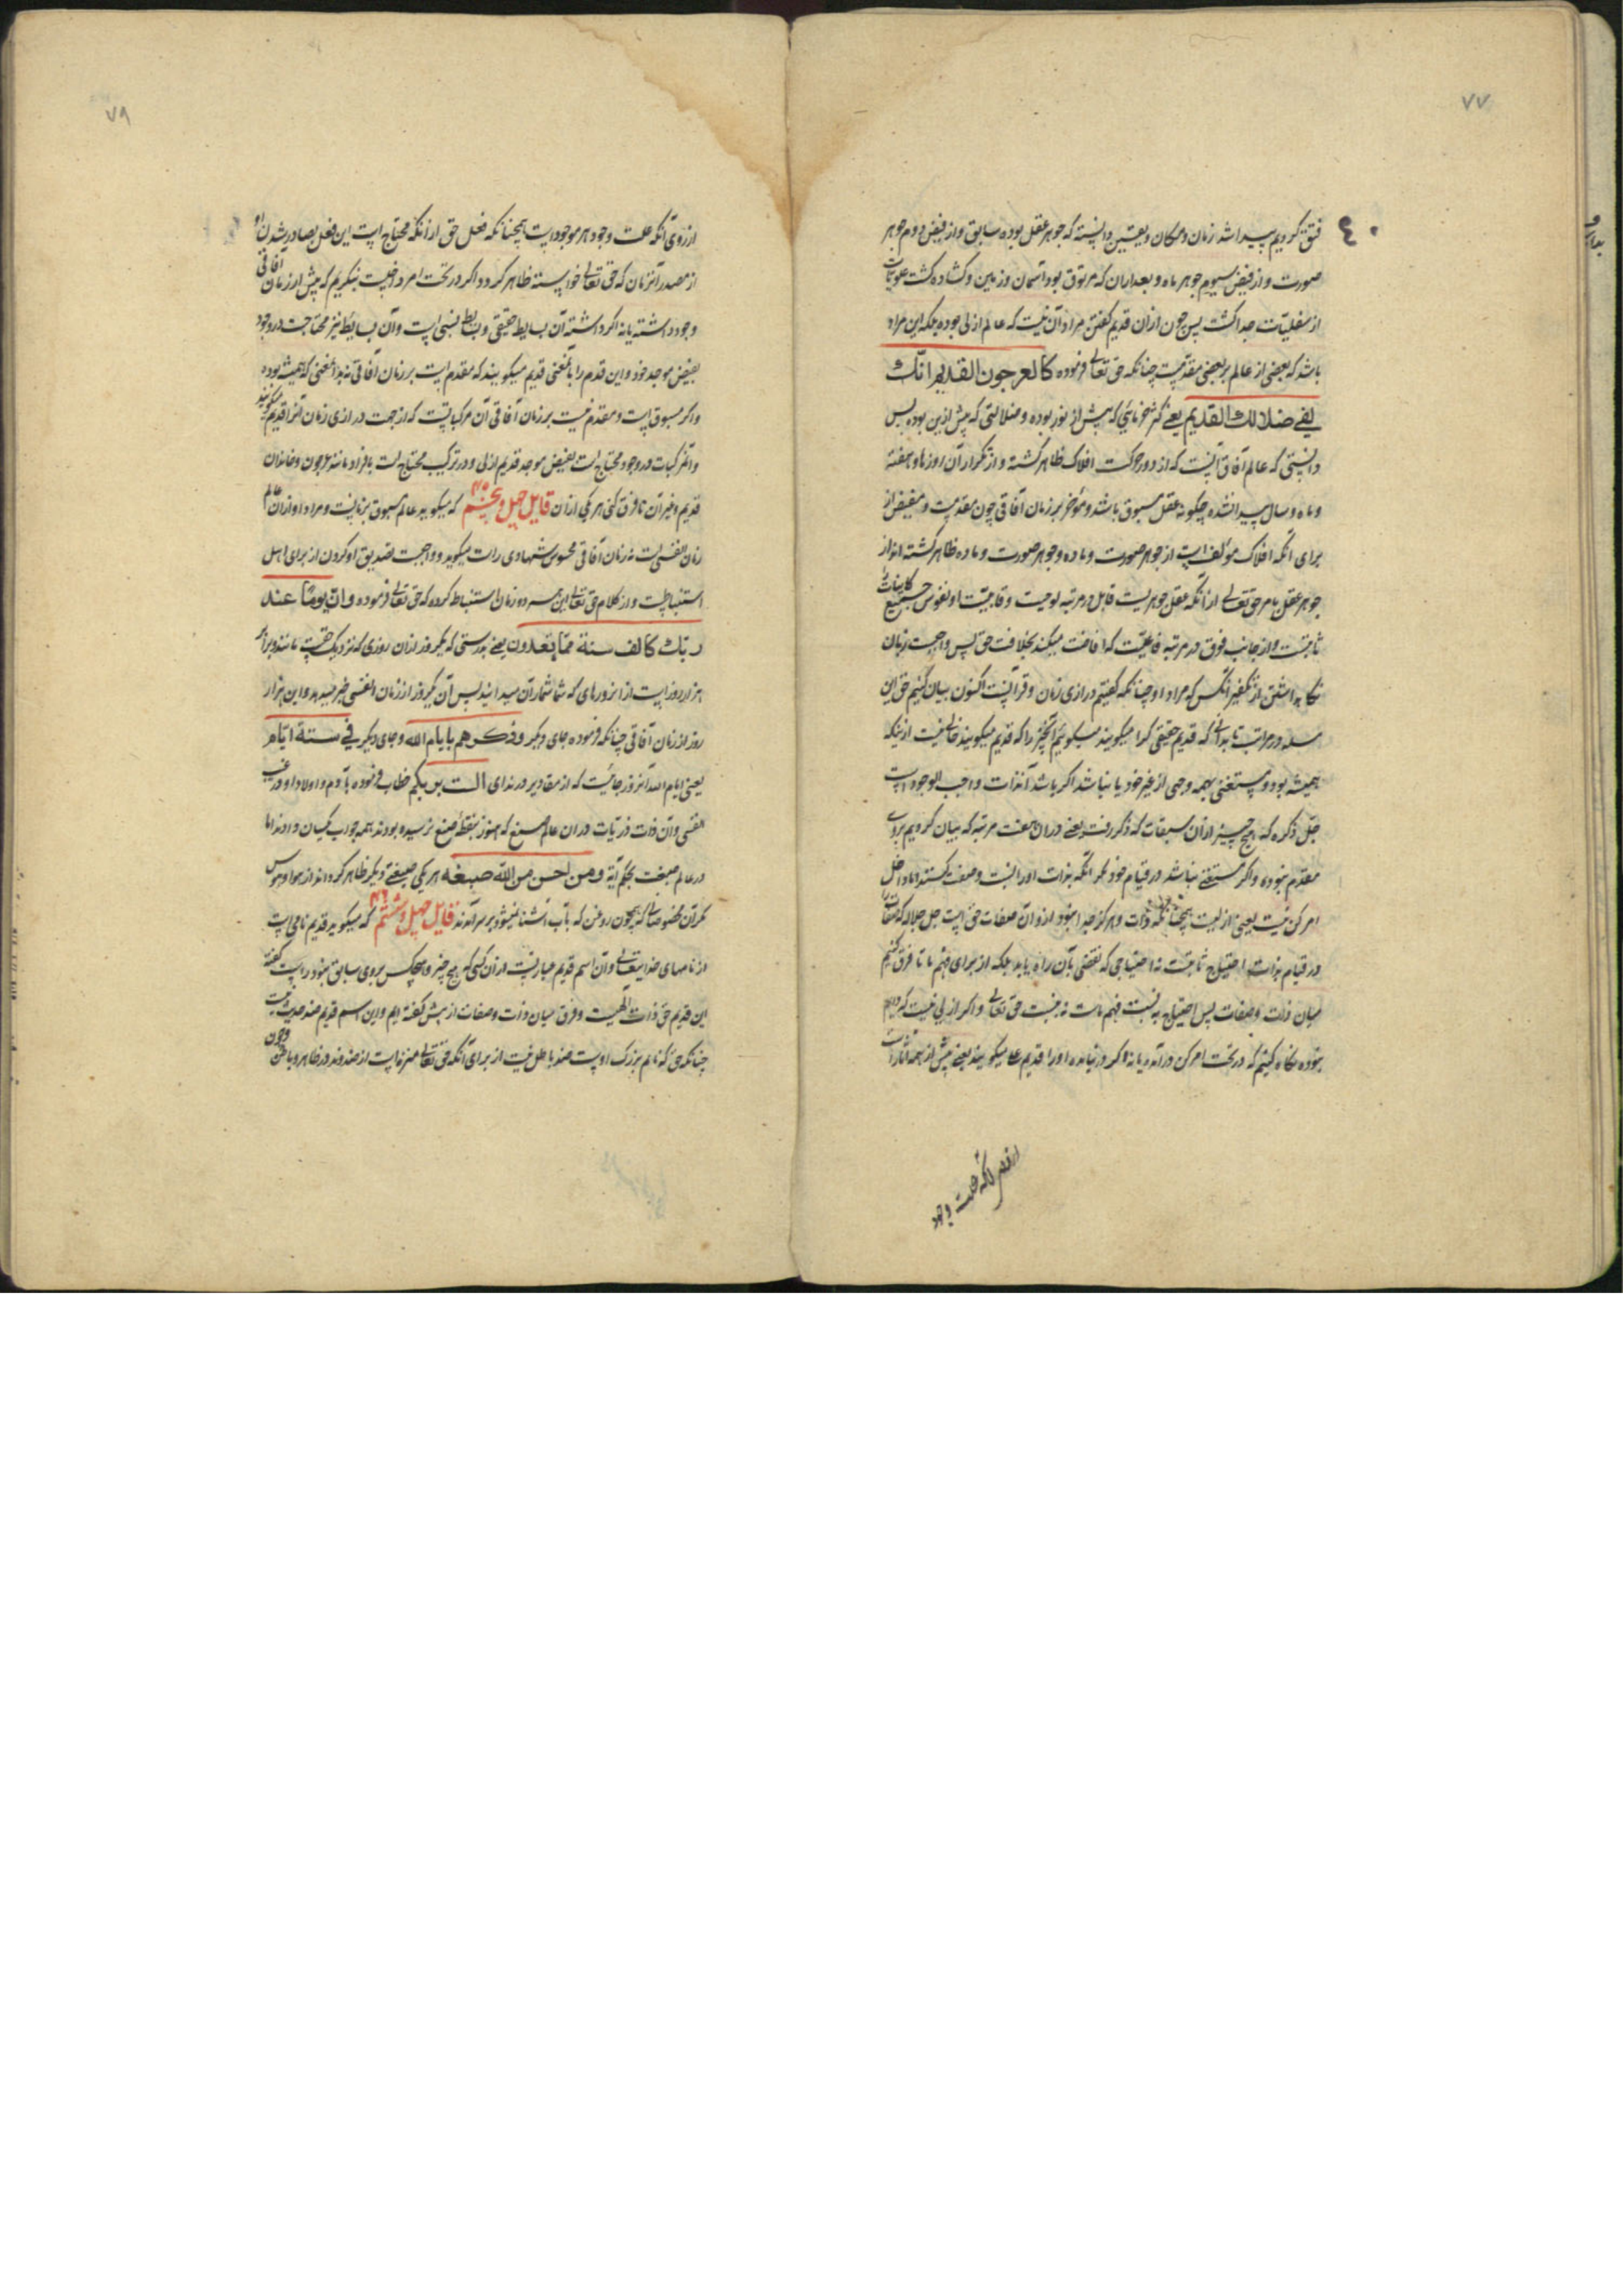 ۷۷
۴۰
فتق کردیم پیدا شد زمان و مکان و بیقین دانسته که جوهر عقل بوده سابق و از فیض دوم جوهر
صورت و از فیض سیوم جوهر ماده و بعد از ان که مرتوق بود آسمان و زمین و کشاده کشت علویات
از سفلیات جدا کشت پس چون از ان قدیم کفتن مراد آن نیست که عالم ازلی بوده بلکه این مراد
باشد که بعضی از عالم بر بعضی مقدمست چنانکه حق تعالی فرموده کالعرجون القدیم انّک
لفی ضلالک القدیم یعنی که پیش از بوده و ضلالتی که پیش ازین بوده پس
دانستی که عالم آفاق آنست که از دور حرکت افلاک ظاهر کشته و از تکرار آن روزها و هفته
و ماه و سال پیدا شده چکونه عقل مسبوق باشد و مؤخر بر زمان آفاقی چون مقدمست و مفیض از
برای آنکه افلاک مؤلف است از جوهر صورت و ماده و جوهر صورت و ماده ظاهر کشته اند از
جوهر عقل بامر حق تعالی از آنکه عقل جوهریست قابل در مرتبه لوحیت و قابلیت او نفوس جمیع کاینات را
ثابتست و از جانب فوق در مرتبه فاعلیت که افاضت میکند بخلافت حق پس واجبست زبان
نکاه داشتن از تکفیر آنکس که مراد او چنانکه کفتیم درازی زمان و قرآنست اکنون بیان کنیم حق این
مسله در مراتب تا بدانی که قدیم حقیقی کرا میکویند میکوییم آنچیز را که قدیم میکویند خالی نیست از اینکه
همیشه بوده و مستغنی بهمه وجهی از غیر خود یا نباشد اکر باشد آن ذات واجب الوجود است
جل ذکره که هیچ چیز از ان سبقات که ذکر رفت یعنی دران هفت مرتبه که بیان کردیم بروی
مقدم نبوده و اکر مستغنی نباشد در قیام خود مکر آنکه بذات او را نسبت وصف کنند اما داخل
امر کن نیست یعنی ازلیست همچنانکه ذات و هرکز جدا نبود ازو آن صفات حق است جل جلاله که صفات را
در قیام بذات احتیاج ثابتست نه احتیاجی که نقصی بآن راه یابد بلکه از برای فهم ما تا فرق کنیم
میان ذات و صفات پس احتیاج به نسبت فهم ماست نه نسبت حق تعالی و اکر ازلی نیست که دایم
بوده نکاه کنیم که در تحت امر کن درآمد یا نه و اکر درنیامده او را قدیم علی میکویند یعنی پیش از همه آثار است
از روی آنکه علت وجود
۷۸
از روی آنکه علت وجود هر موجودیست همچنانکه فعل حق از آنکه محتاج است این فعل بصادر شدن او
از مصدر آنزمان که حق تعالی خواسته ظاهر کردد و اکر در تحت امر داخلست بنکریم که پیش از زمان آفاقی
وجود داشته یا نه اکر داشته آن بسایط حقیقی و بسایط نسبی است و آن بسایط نیز محتاجست در وجود
بفیض موجد خود و این قدم را بآنمعنی قدیم میکویند که مقدم است بر زمان آفاقی نه بدانمعنی که همیشه بوده
و اکر مسبوق است و مقدم نیست بر زمان آفاقی آن مرکباتست که از جهت درازی زمان آنرا قدیم میکویند
و آنمرکبات در وجود محتاج است بفیض موجد قدیم ازلی و در ترکیب محتاج است بافراد مانند عرجون و خاندان
قدیم و غیر آن تا فرق کنی هر یکی از ان قایل چهل و پنجم ۴۵ که میکوید عالم مسبوق بزمانست و مراد او از ان عالم
زمان انفسی است نه زمان آفاقی محسوس شهادی راست میکوید و واجبست تصدیق او کردن از برای اهل
استنباطست و از کلام حق تعالی این سه دو زمان استنباط کرده که حق تعالی فرموده وانّ یومًا عند
ربک کالف سنة ممّا تعدون یعنی بدرستی که یکروز از ان روزی که نزدیک حقست مانند و برابر
هزار روز است از انروزهای که شما شمار آن میدانید پس آن یکروز از زمان انفسی خبر میدهد و این هزار
روز از زمان آفاقی چنانکه فرموده جای دیکر وذکرهم بایام الله و جای دیکر فی ستة ایام
یعنی ایام الله آنروز جائیست که از مقادیر در ندای الست بربکم خطاب فرموده بآدم و اولاد او در غیب
انفسی و آن ذات ذریات دران عالم صبغ که هنوز بنقطه صبغ نرسیده بودند همه جواب یکسان دادند اما
در عالم صبغت بحکم آیة ومن احسن من الله صبغة هر یکی صبغتی دیکر ظاهر کردند از هوا و هوس
مکر آن مخصوصانی که همچون روغن که بآب آشنا نمیشود بر سر آمدند قایل چهل و ششم ۴۶ که میکوید قدیم نامی است
از نامهای خدایتعالی و آن اسم قدیم عبارتست از ان کسی که هیچ چیز و هیچکس بروی سابق نبود راست کفته
این قدیم حق ذات الهیست و فرق میان ذات و صفات از پیش کفته ایم و این اسم قدیم ضد حدیث نیست
چنانکه حق که نام بزرک اوست ضد باطل نیست از برای آنکه حق تعالی منزه است از ضد و ند در ظاهر و باطن و چون